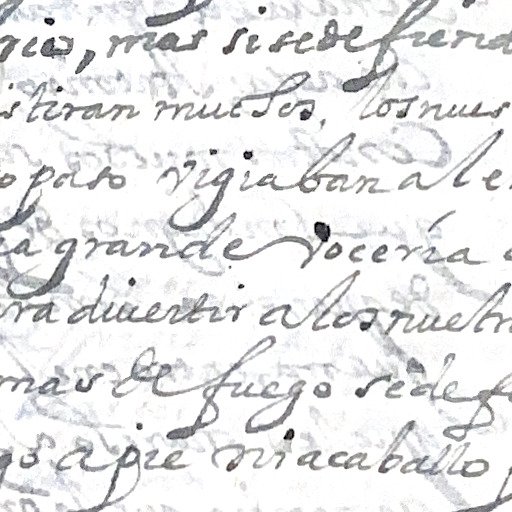 gio, mas si se defiend
istiran muchos. los nues
o paso vigiaban al e
ia grande voceria
ra divertir a los nuestr
mas de fuego se def
gos a pie ni a caballo